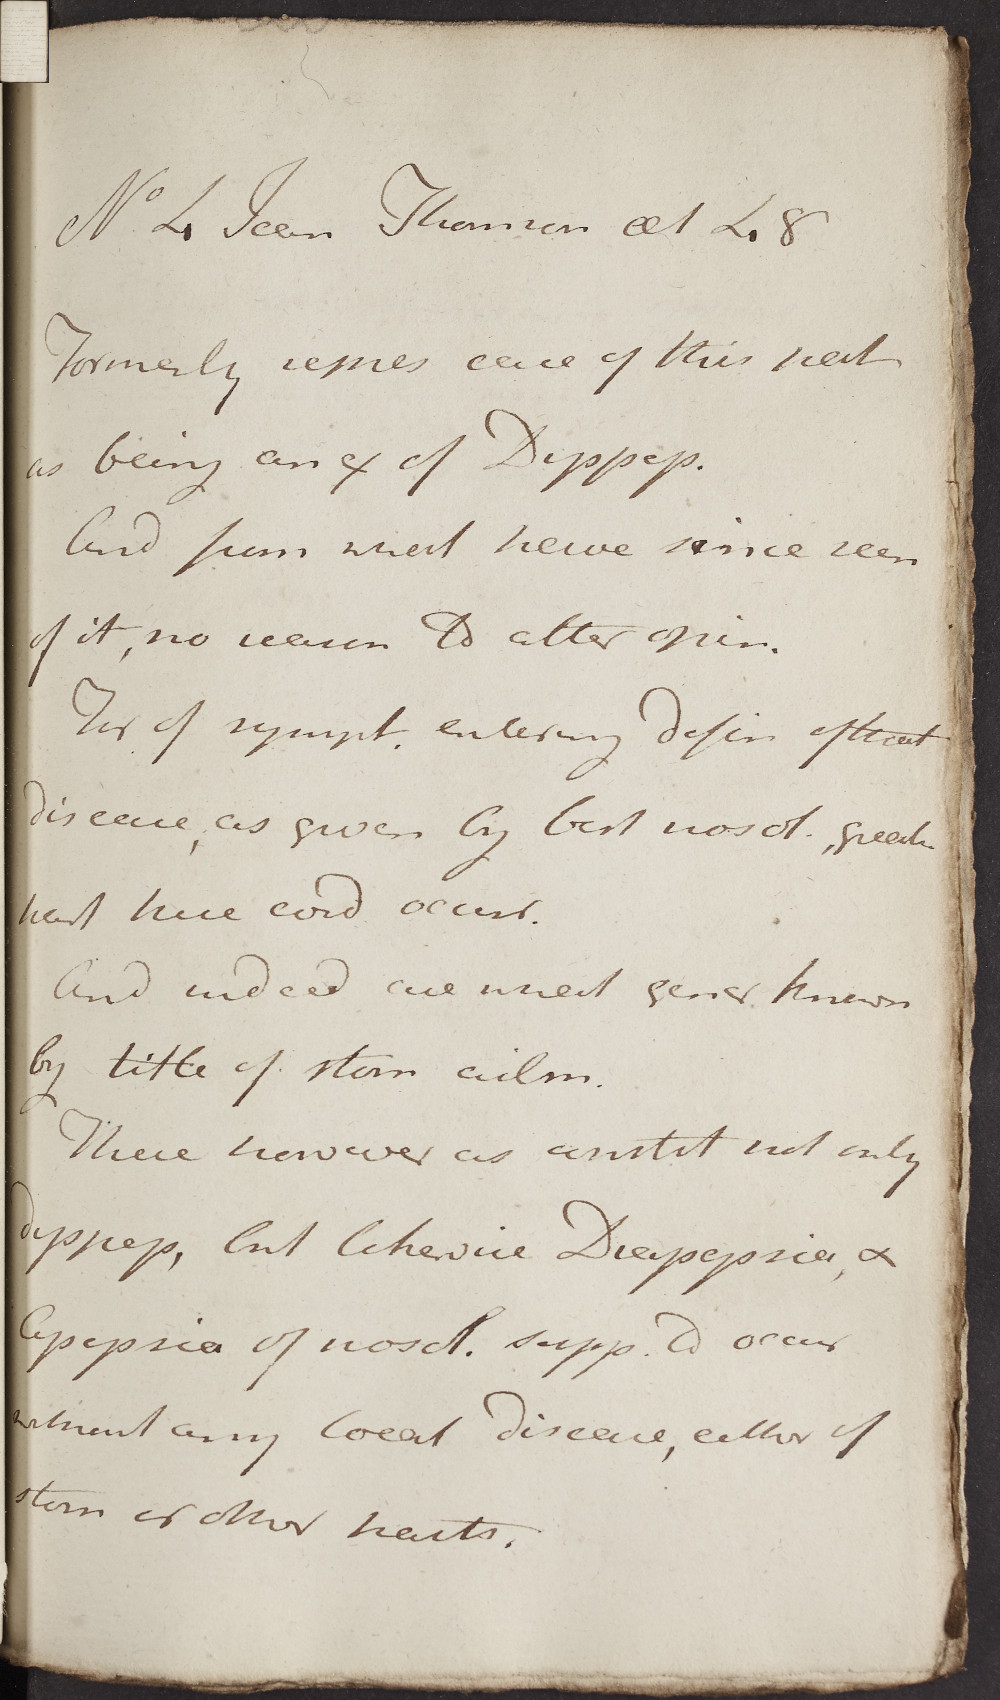 No 4 Jean Thomson æt 48
Formerly repres case of this pat
as being an ex of Dyspep.
And from what have since seen
of it, no reason to alter opin.
For of sympt. entering defin of that
disease, as given by best nosol., great
part here cord occurr.
And indeed are what gener known
by title of stom ailm.
These however as constit not only
dyspep, but likewise Diapepsia, &
Apepsia of nosol. supp. to occur
without any local disease, either of
stom or other parts.